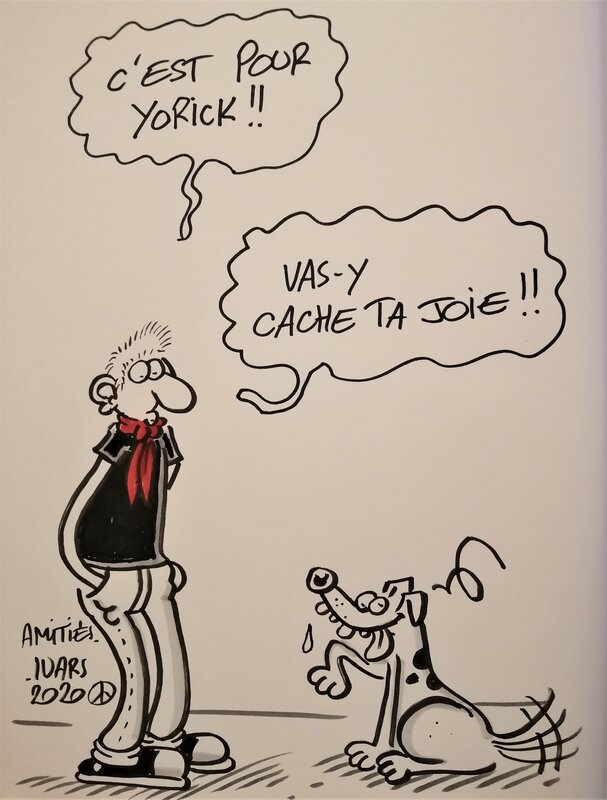 C'EST POUR
YORICK !!
VAS-Y
CACHE TA JOIE !!
AMITIÉS.
IVARS
2020